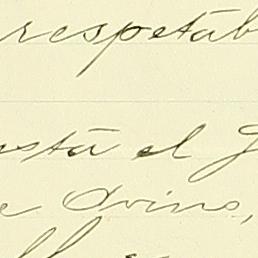 respetab
está el G
e Ovino,